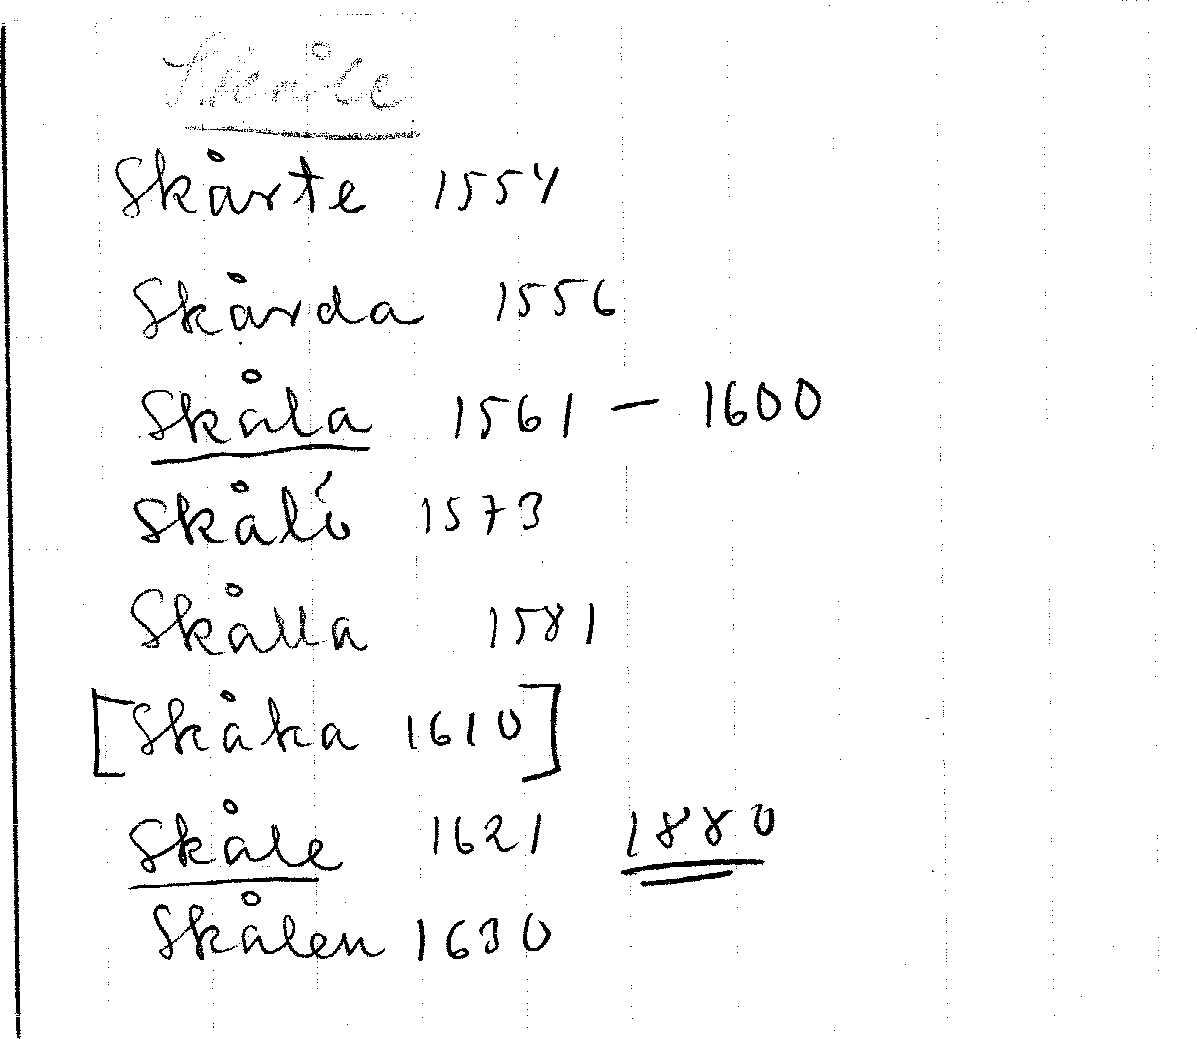 Skårte 1554
Skårda 1556
Skåla 1561 – 1600
Skåló 1573
Skålla 1581
[Skåka 1610]
Skåle 1621 1880
Skålen 1630